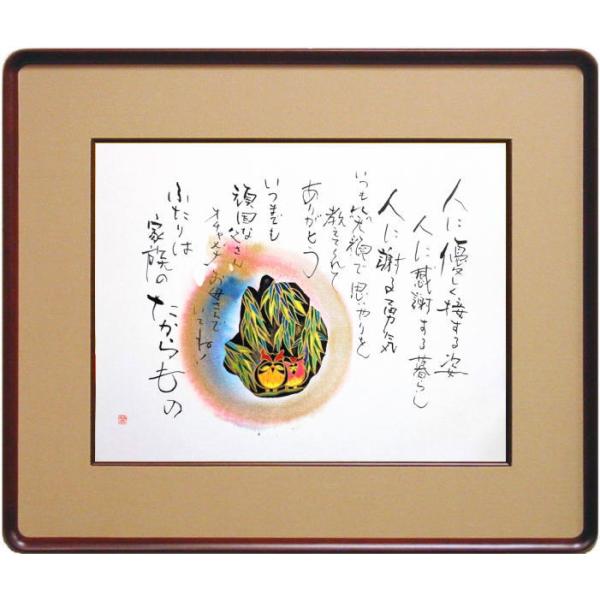 人に優しく接する姿
人に感謝する暮らし
人に謝る勇気
いつも笑顔で思いやりを
教えてくれて
ありがとう
いつまでも
頑固な父さん
オチャメなお母さんで
いてね!
ふたりは
家族の
たからもの